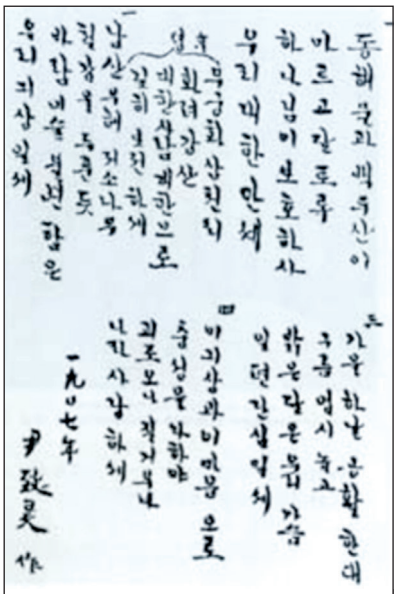 동해물과 백두산이
마르고 달토록
하나님이 보호하사
우리 대한 만세
후렴
무궁화 삼천리
화려강산
대한사람 대한으로
길히 보전하세
남산우헤 저 소나무
철갑을 두른듯
바람이슬 불변함은
우리 긔상일세
三
가을하날 공활한대
구름업시 놉고
밝은 달은 우리 가슴
일편단심일세
四
이 긔상과 이 마음으로
충성을 다하야
괴로오나 질거우나
나라사랑하세
一九○七年
尹致昊 作